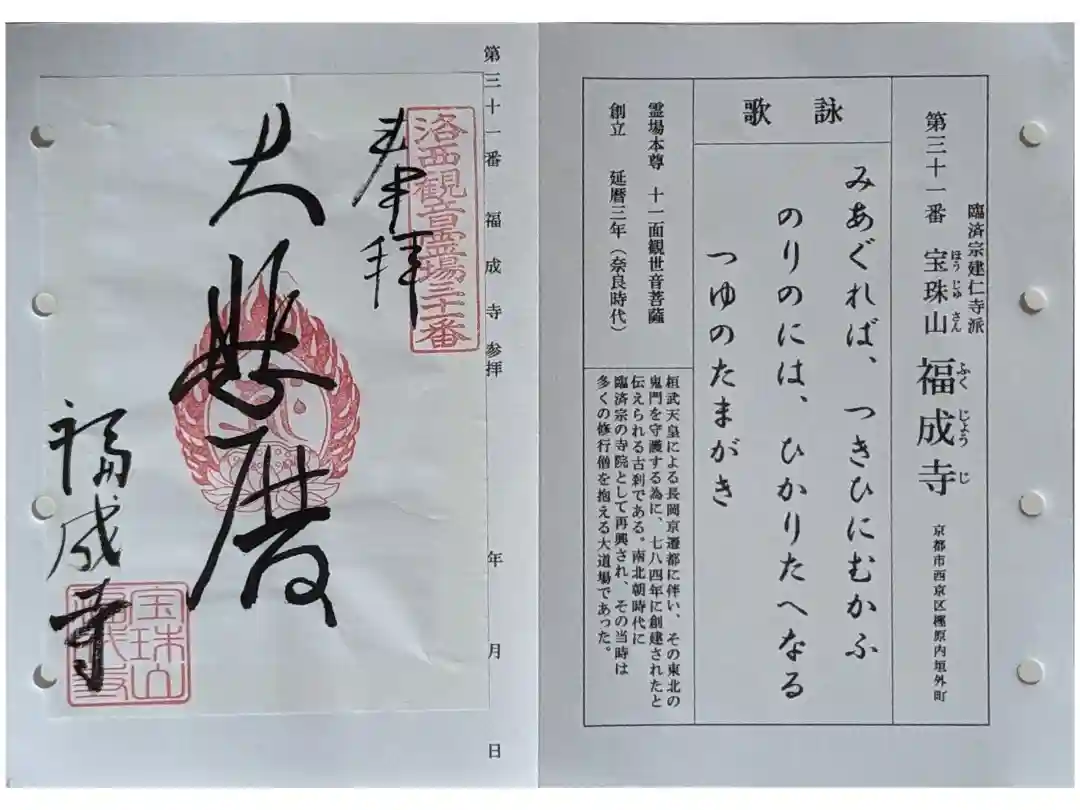 臨済宗建仁寺派
第三十一番 宝珠山 福成寺
ほうじゅさん ふくじょうじ
京都市西京区樫原内垣外町
詠歌
みあぐれば、つきひにむかふ
のりのには、ひかりたへなる
つゆのたまがき
霊場本尊 十一面観世音菩薩
創立 延暦三年(奈良時代)
桓武天皇による長岡京遷都に伴い、その東北の
鬼門を守護する為に、七八四年に創建されたと
伝えられる古刹である。南北朝時代に
臨済宗の寺院として再興され、その当時は
多くの修行僧を抱える大道場であった。
第三十一番 福成寺 参拝 年 月 日
洛西観音霊場三十一番
奉拝
大悲
福成寺
宝珠山
福成寺